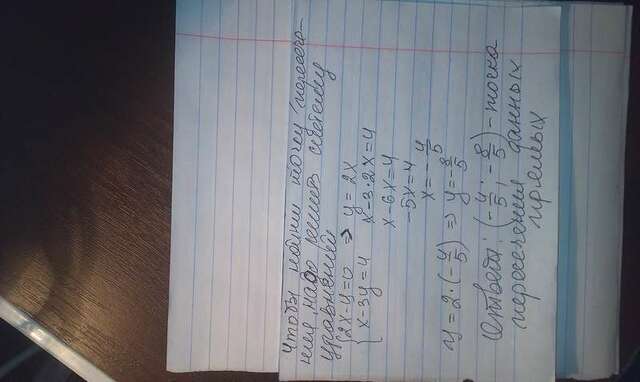 Чтобы найти точку пересече-
ния, надо решить систему
уравнений
{2x-y=0 => y=2x
{x-3y=4 x-3·2x=4
x-6x=4
-5x=4
x=-4/5
y=2·(-4/5) => y=-8/5
Ответ: (-4/5; -8/5) - точка
пересечения данных
прямых